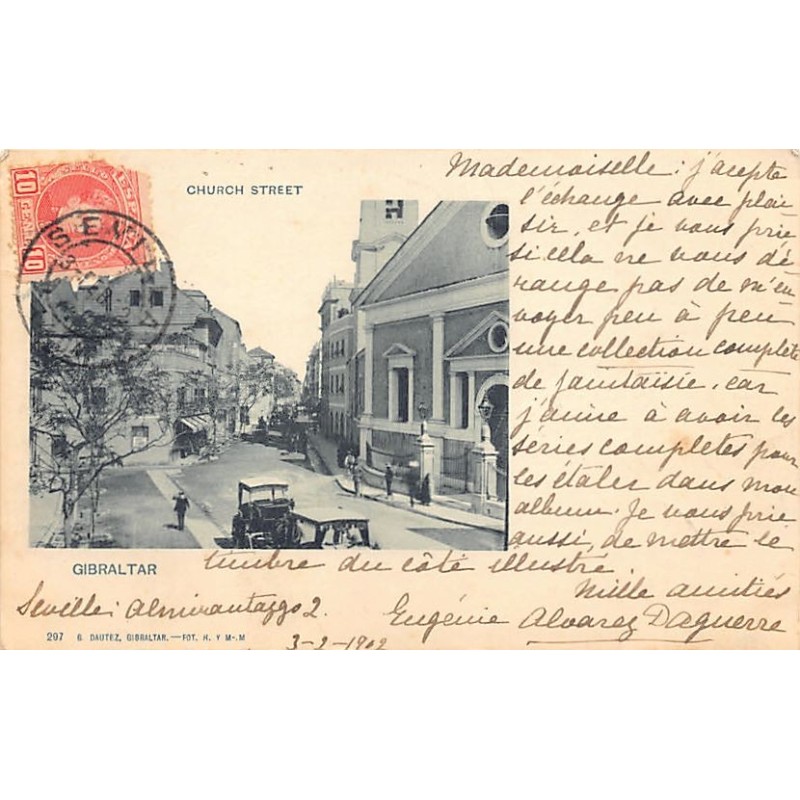 CHURCH STREET
Mademoiselle: j'acepte
l'échange avec plai
sir, et je vous prie
si cela ne vous dé
range pas de m'en
voyer peu à peu
une collection complète
de fantaisie, car
j'aime à avoir les
séries complètes pour
les étaler dans mon
album. Je vous prie
aussi, de mettre le
timbre du côté illustré.
Mille amitiés
Eugénie Alvarez Daguerre
GIBRALTAR
Seville: Almirantazgo 2.
3-2-1902
297 B. DAUTEZ, GIBRALTAR.—FOT. H. Y M-.M
10
10
SEVILLA